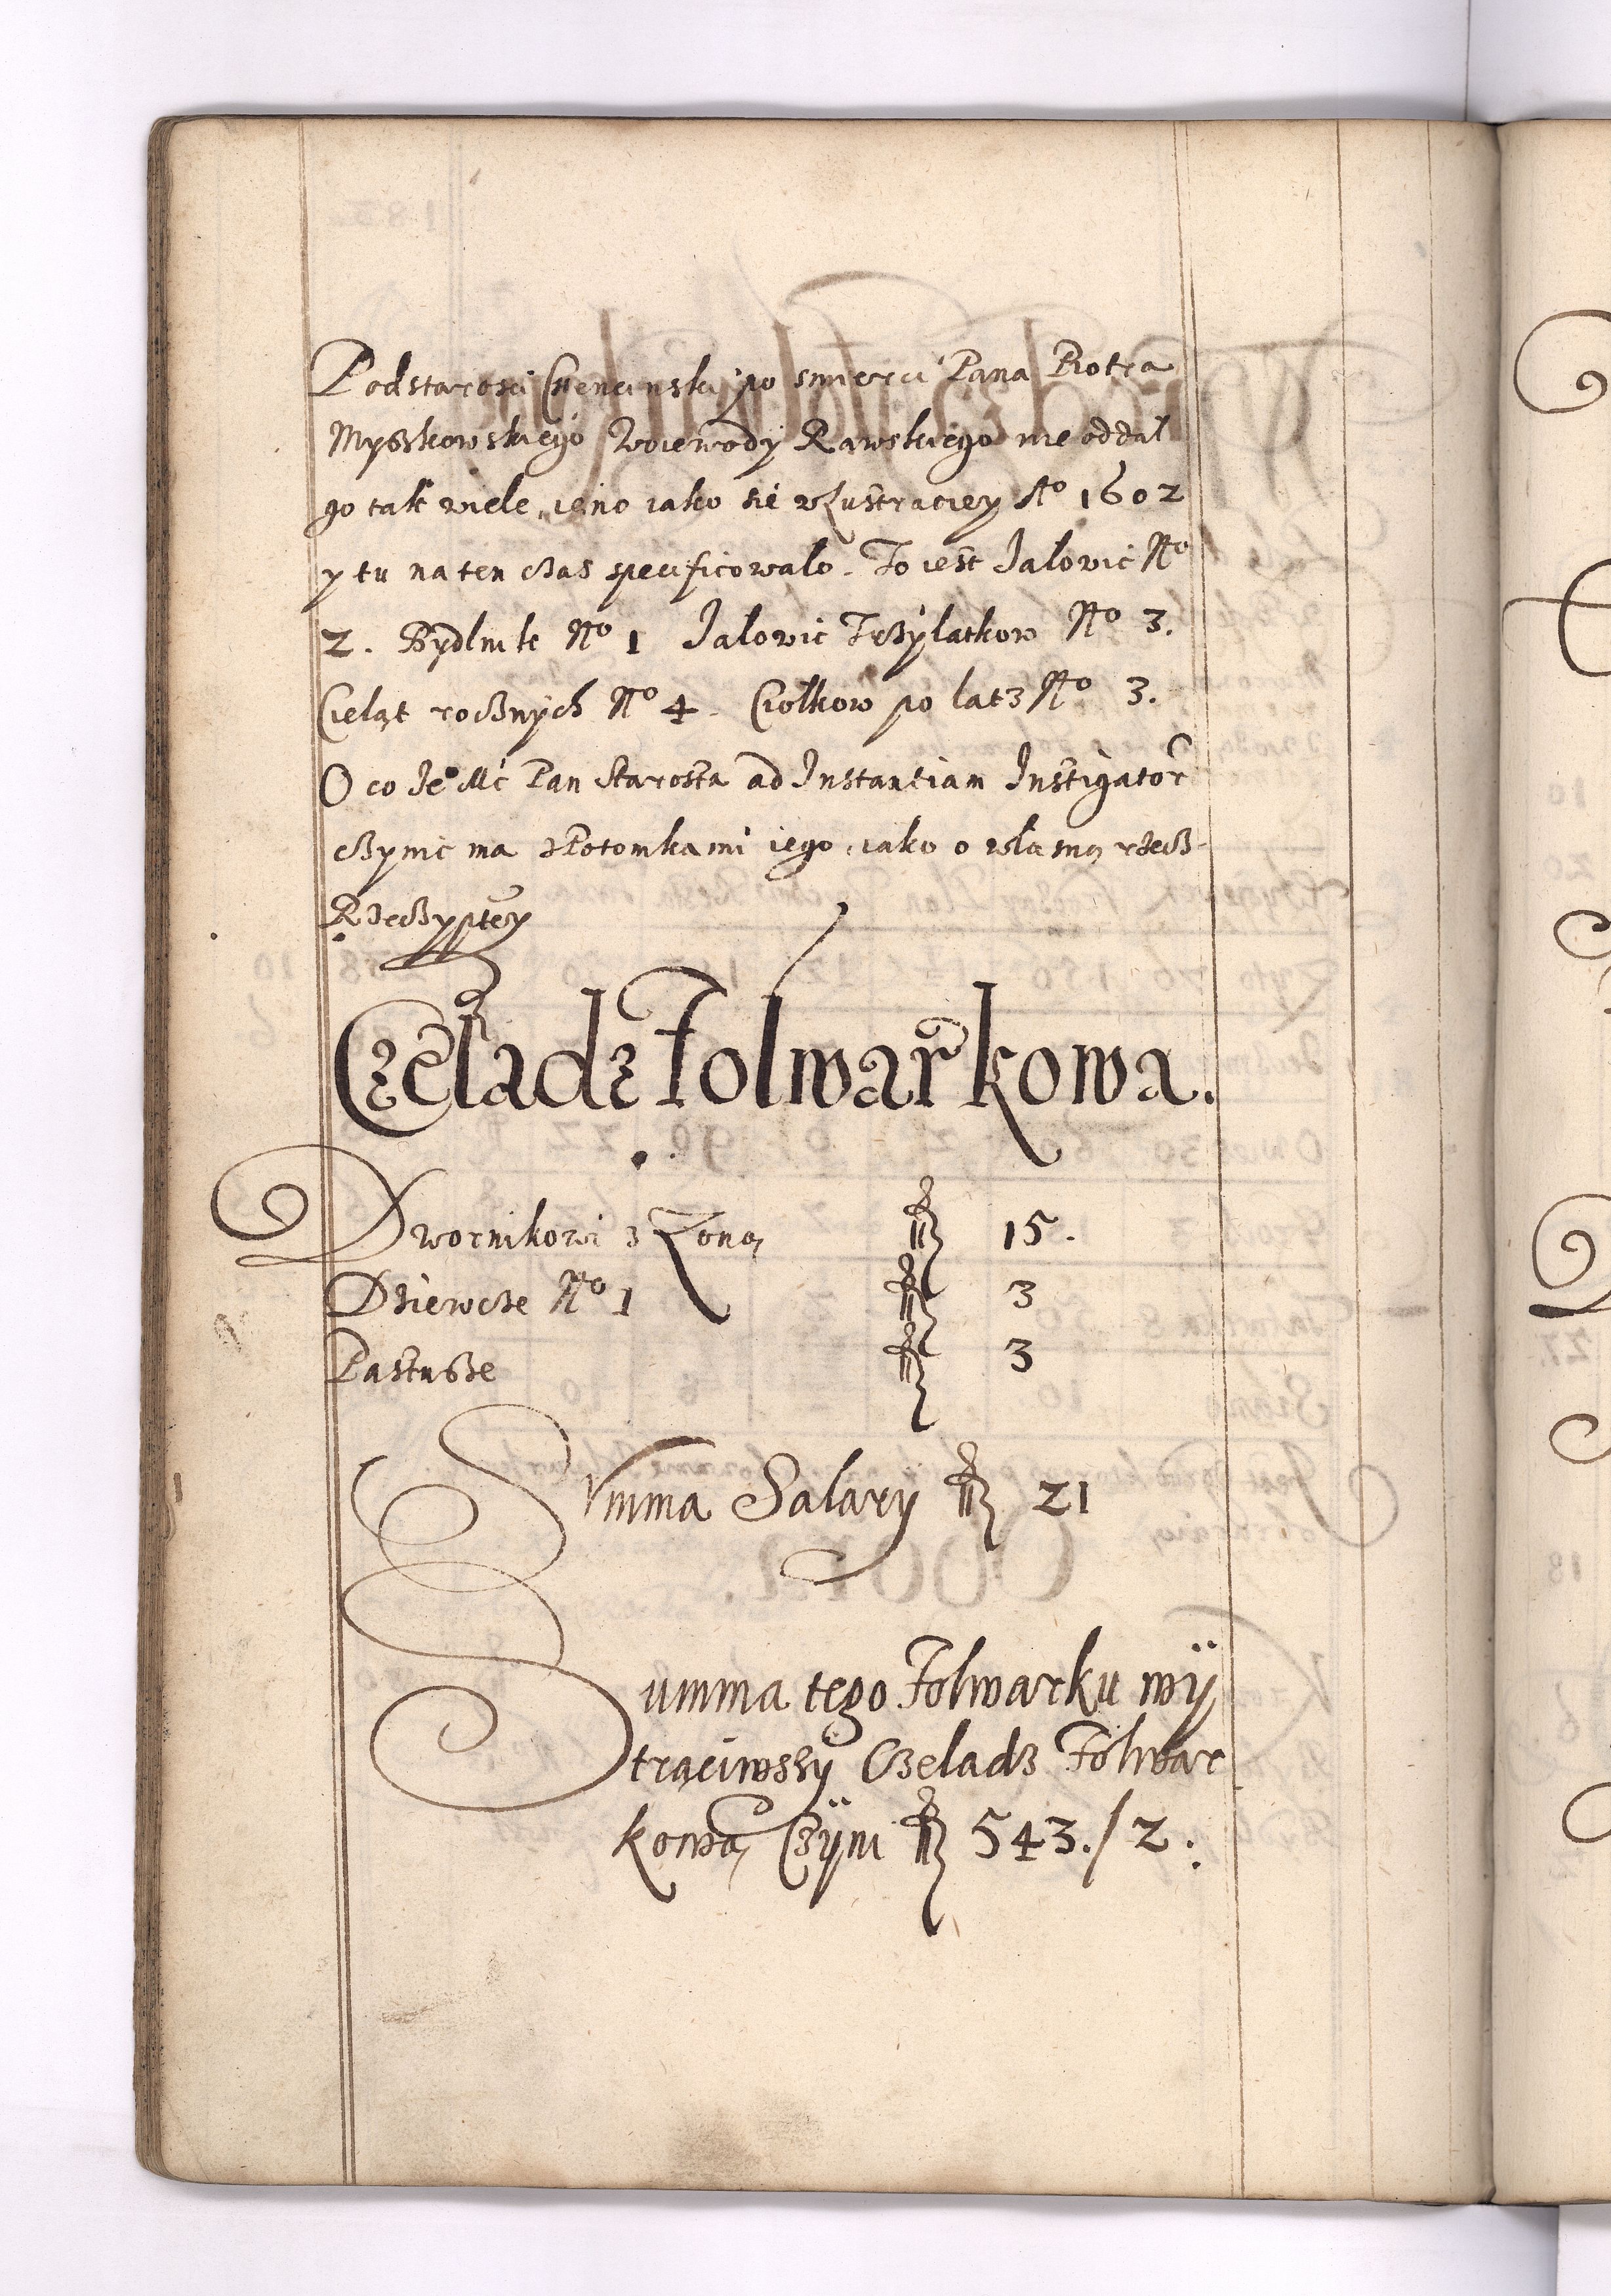 Podstarosci Chencinski po smierci Pana Piotra
Myszkowskiego Woiewody Rawskiego nie oddał
go tak wiele, ieno iako sie w Lustraciey Aº 1602
y tu na ten czas specificowało. To iest Jalowic Nº
2. Bydlnik Nº 1 Jalowic Trzÿlatkow Nº 3.
Cieląt rocznÿch Nº 4. Ciołkow po lat 3 Nº 3.
O co Jeº Mć Pan Starosta ad Instantiam Instigator
czynic ma z Potomkami iego, iako o własną rzecz
Rzeczyptey
Czeladz Folwarkowa.
Dwornikowi z Zoną fl 15.
Dziewcze Nº 1 fl 3
Pastusze fl 3
Summa Salarÿ fl 21
Summa tego Folwarku wÿ
trąciwszÿ Czeladz Folwar
kową Czÿni fl 543. / 2.